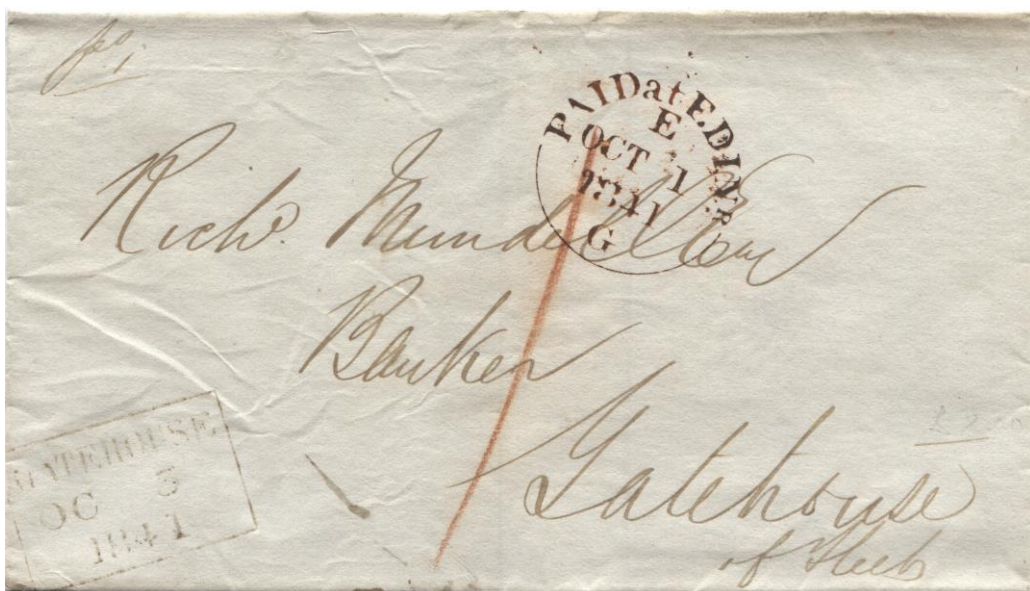 PAID at EDINR
E
OCT 1
1841
G
Richd. Mundell Esq
Banker
Gatehouse
of Fleet
GATEHOUSE
OC 3
1841
1